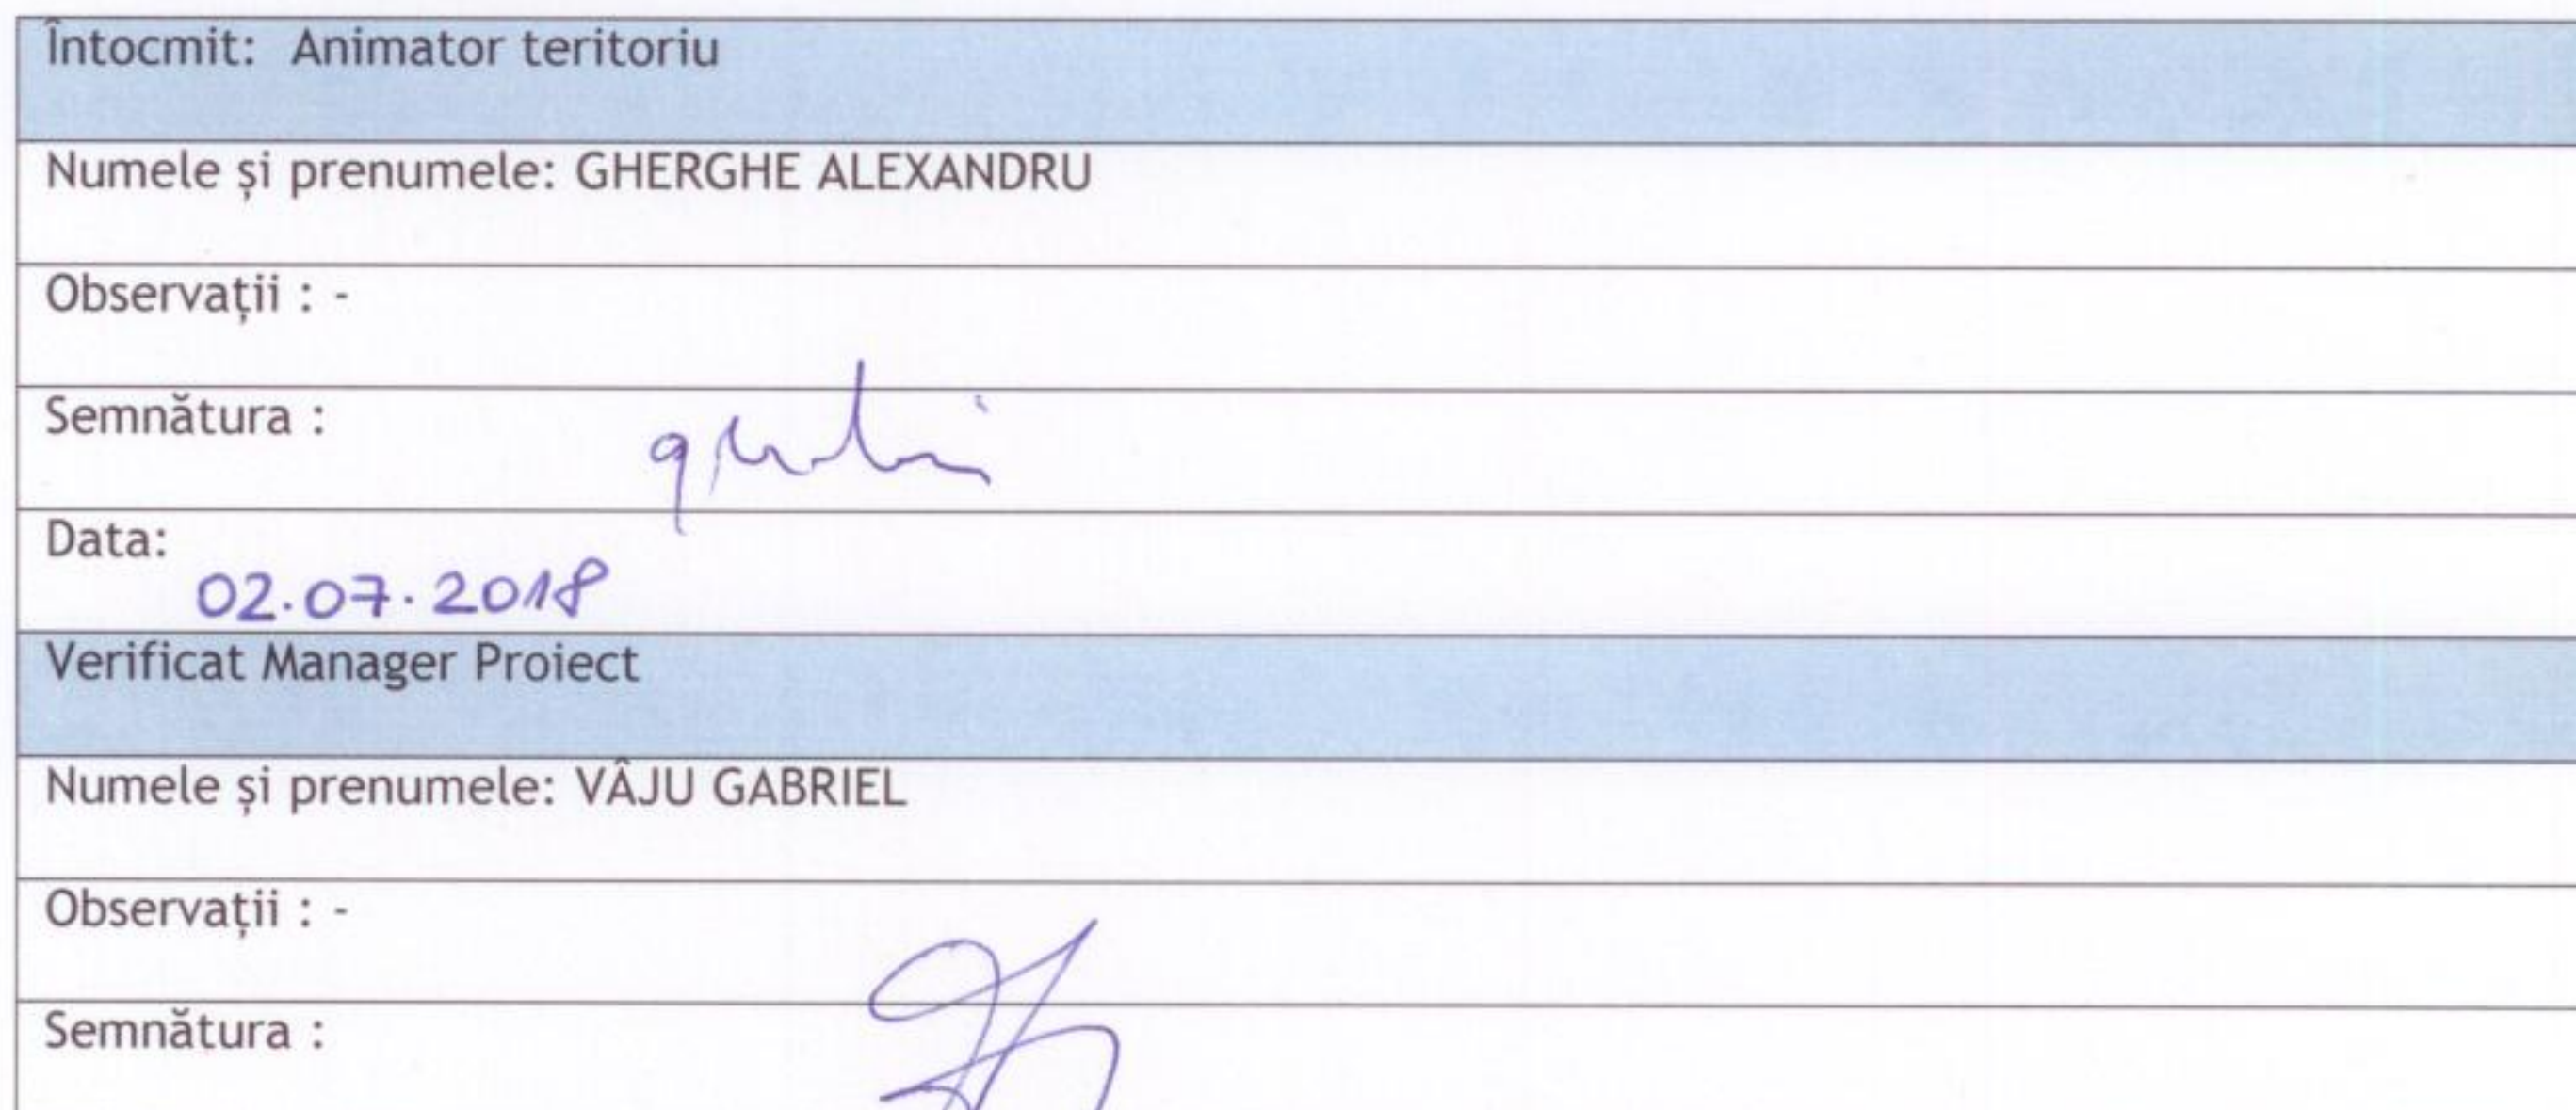 Întocmit: Animator teritoriu
Numele și prenumele: GHERGHE ALEXANDRU
Observații : -
Semnătura :
Data:
02.07.2018
Verificat Manager Proiect
Numele și prenumele: VÂJU GABRIEL
Observații : -
Semnătura :